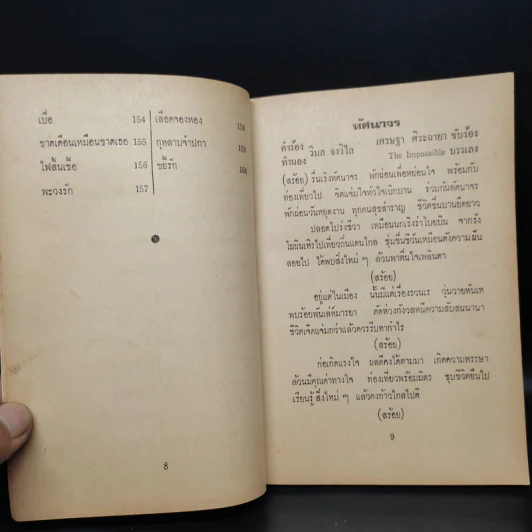 เบื่อ 154
ขาดเดือนเหมือนขาดเธอ 155
ไฟสิ้นเชื้อ 156
พะวงรัก 157
เลือดจองทอง 158
กุหลาบจำปา
ขยี้รัก
8
ทัศนาจร
คำร้อง ทำนอง วิมล จงวิไล เศรษฐา ศิระฉายา ขับร้อง
The Impossible บรรเลง
(สร้อย) รื่นเริงทัศนาจร พักผ่อนเพื่อหย่อนใจ พร้อมกับ
ท่องเที่ยวไป จิตแจ่มใจหัวใจเบิกบาน ร่วมกันทัศนาจร
พักผ่อนวันหยุดงาน ทุกคนสุขสำราญ ชีวิตชื่นบานยืดยาว
ปลอดโปร่งชีวา เหมือนนกเริงร่าโบยบิน จากรัง
โผผินเหิรไปเที่ยวถิ่นแดนไกล ชุ่มชื่นชีวันเหมือนดังความฝัน
ลอยไป ได้พบสิ่งใหม่ ๆ ล้วนพาตื่นใจเพลินตา
(สร้อย)
อยู่แต่ในเมือง นั้นมีแต่เรื่องรวนเร วุ่นวายหันเห
พบร้อยพันเล่ห์มารยา ตัดห่วงกังวลหนีความสับสนนานา
ชีวิตเจิดแจ่มกว่าแล้วควรรีบหากำไร
(สร้อย)
ก่อเกิดแรงใจ ผลดีคงได้ตามมา เกิดความหรรษา
ล้วนมีคุณค่าทางใจ ท่องเที่ยวพร้อมมิตร ชุบชีวิตยืนไป
เรียนรู้สิ่งใหม่ ๆ แล้วคงก้าวไกลไปดี
(สร้อย)
9